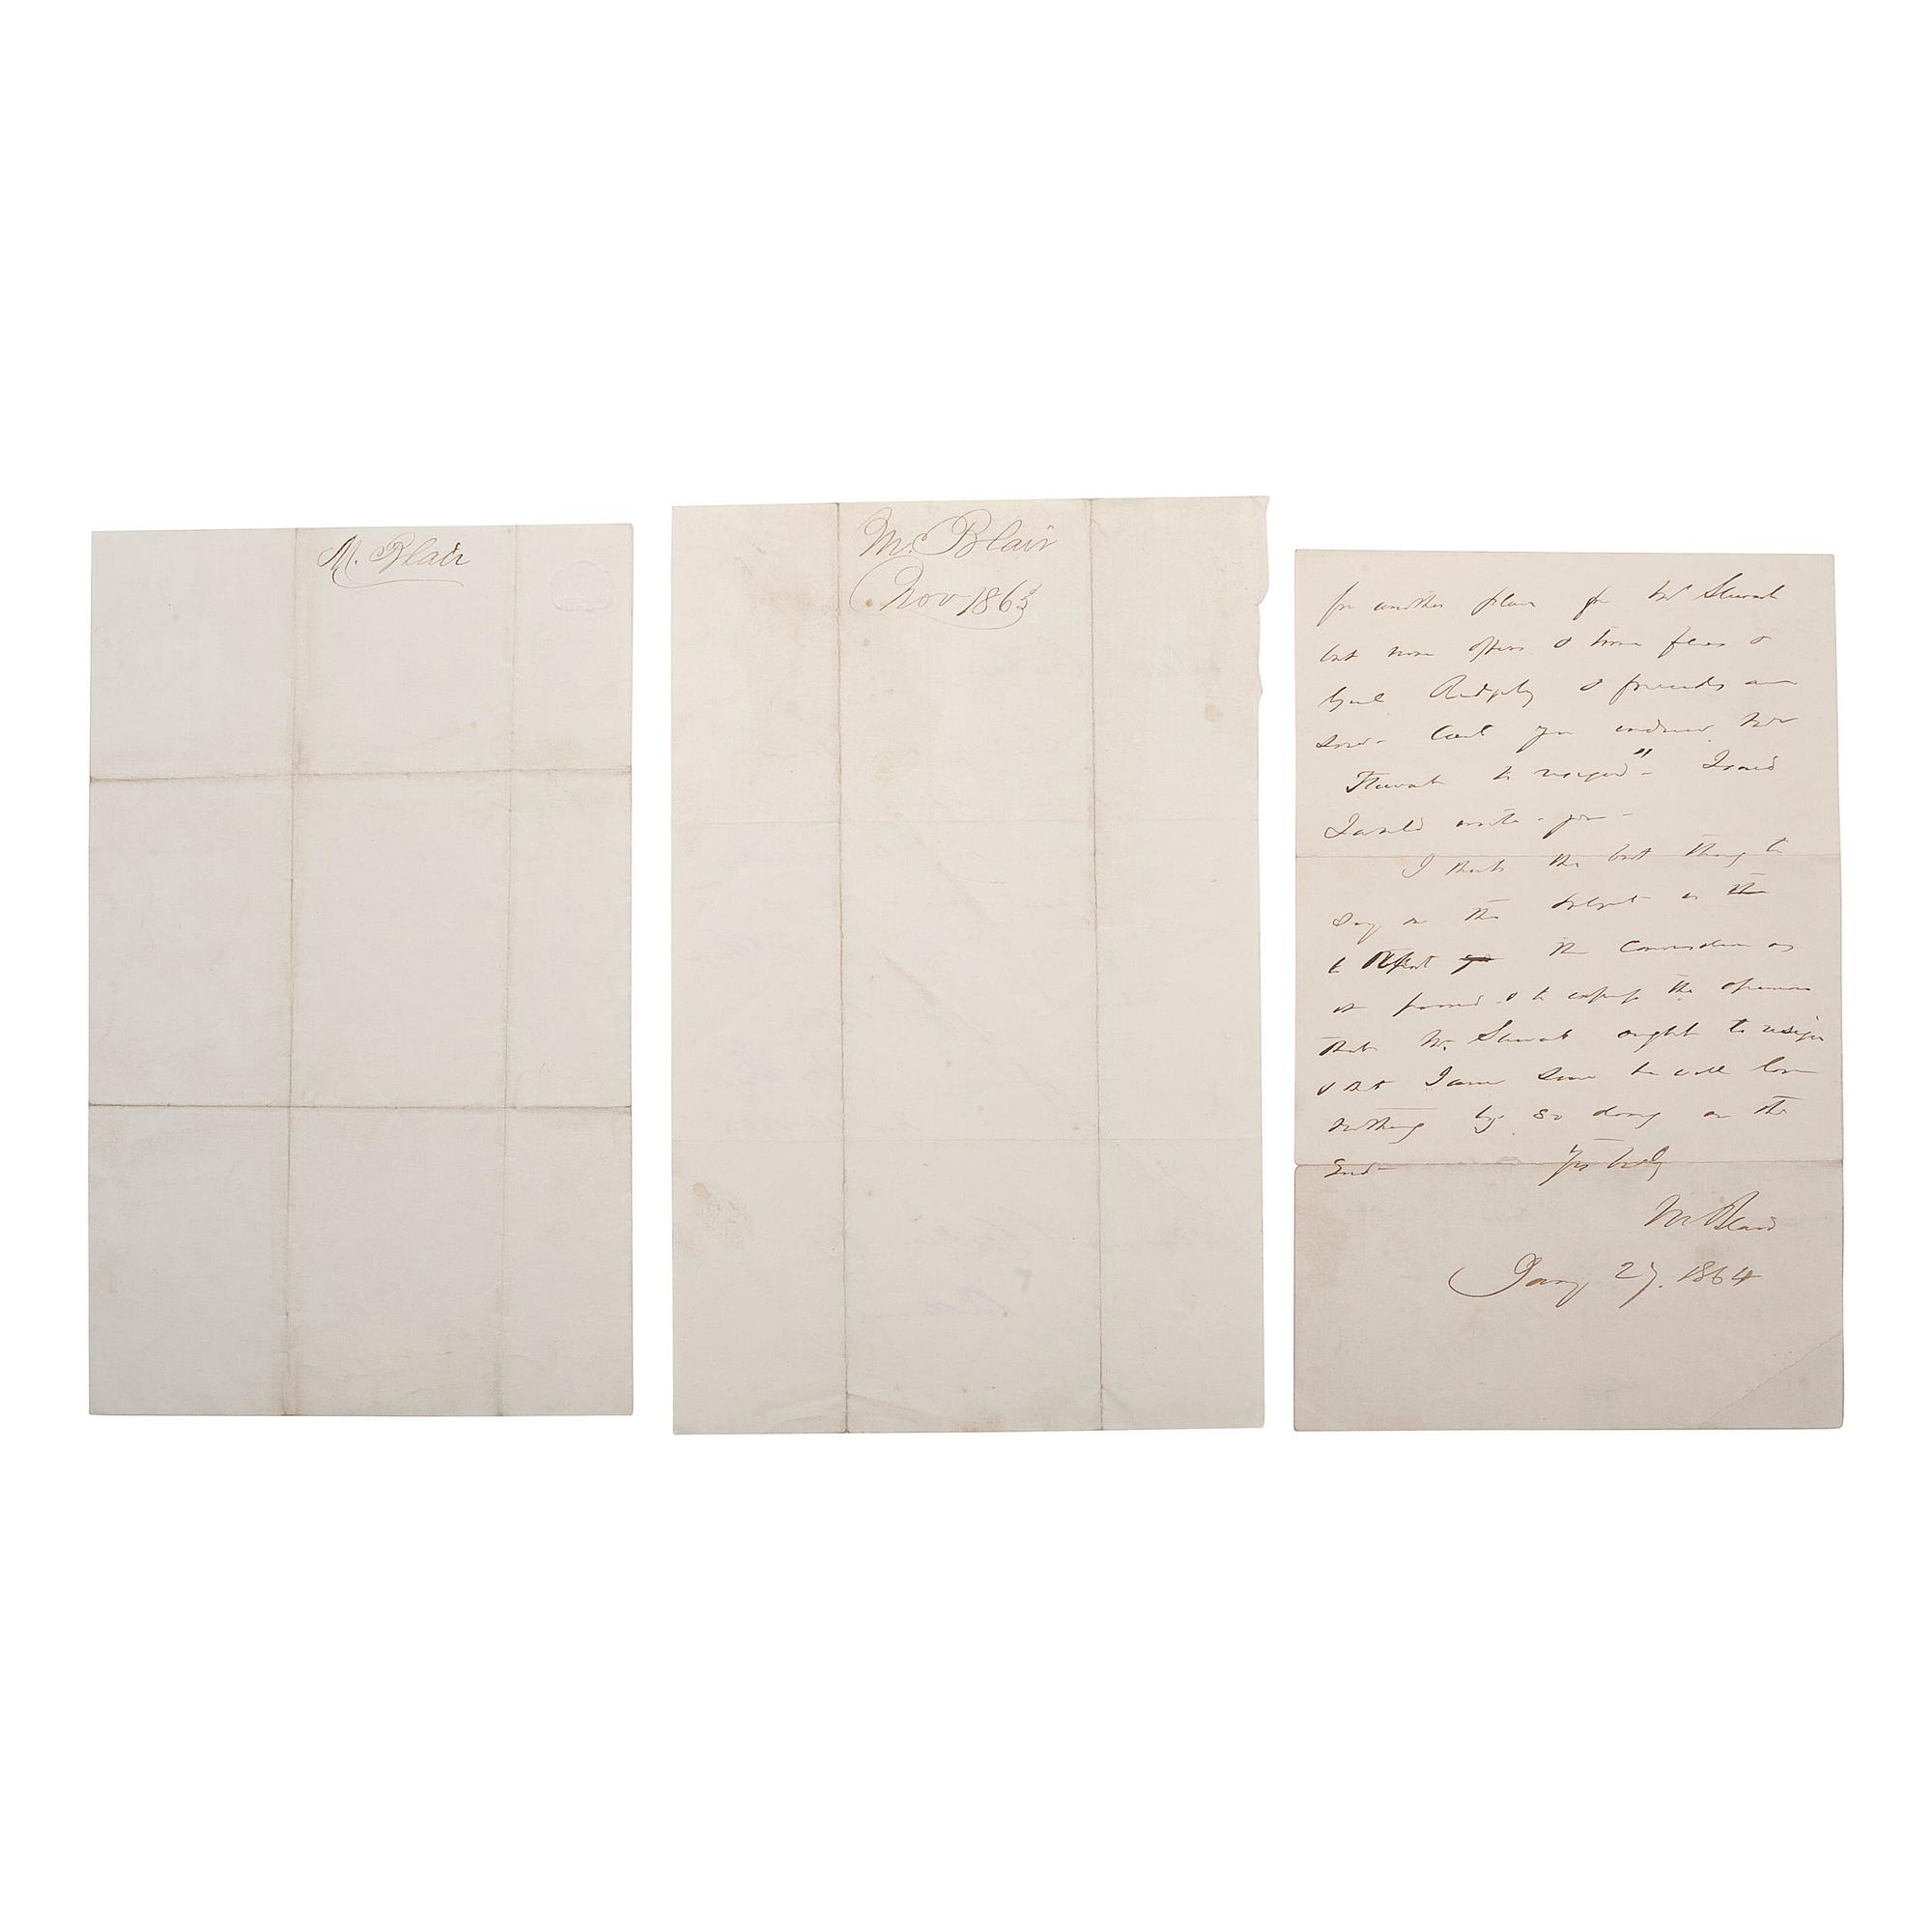 M. Blair
M. Blair
Nov 1863
for another place for Mr Stewart
but now offers & home fees &
Ridgely & friends are
Cant you induce Mr
Stewart to resign" - I said
I would write you -
I think the best thing to
say on the subject is the
to Repeat the Conversation as
it passed & to express the opinion
that Mr. Stewart ought to resign
& that I am sure he will lose
nothing by so doing in the
End - Yrs truly
M Blair
Jany 27. 1864